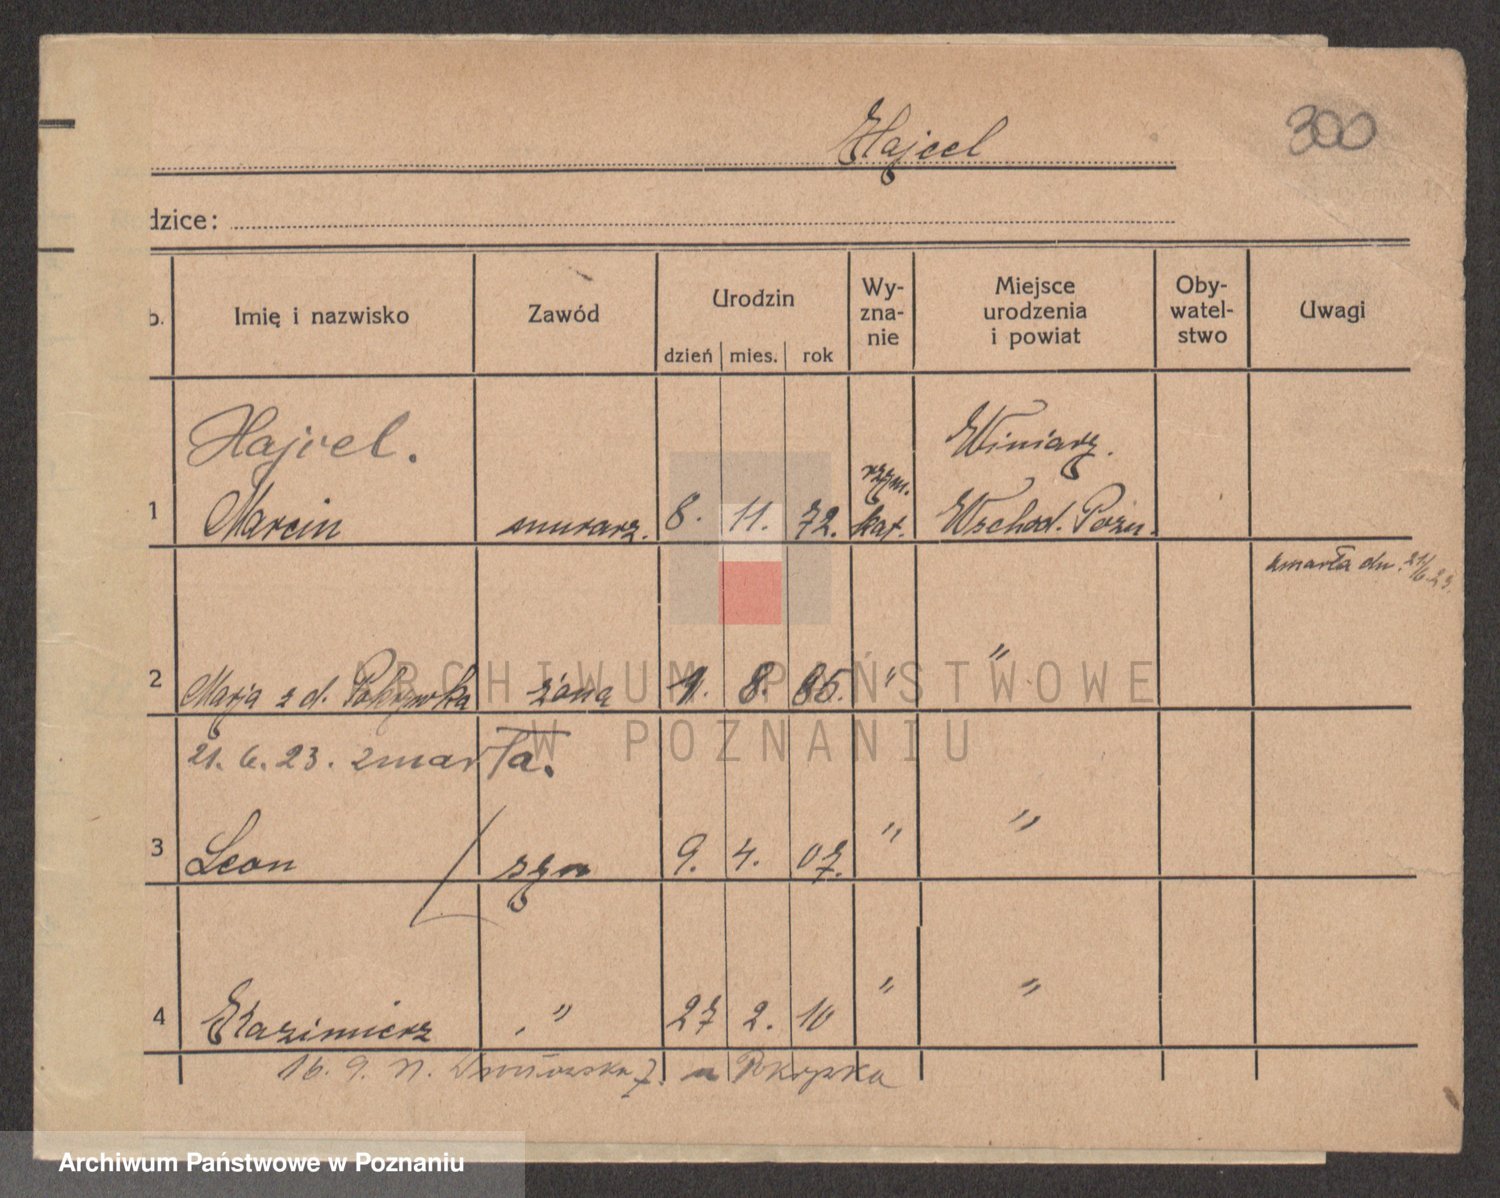 Hajcel
300
dzice:
b. Imię i nazwisko Zawód Urodzin dzień mies. rok Wy-zna-nie Miejsce urodzenia i powiat Oby-watel-stwo Uwagi
Hajcel. Winiarz.
rzym.
1 Marcin murarz. 8. 11. 72. kat. Wschod. Pozn.
zmarła dn. 21/6.23.
2 Marja z d. Pokrywka żona 1. 8. 85. " "
21. 6. 23. zmarła.
3 Leon syn 9. 4. 07. " "
4 Kazimierz " 27 2. 10 " "
16. 9. n. 7. u Pokrywka
ARCHIWUM PAŃSTWOWE
W POZNANIU
Archiwum Państwowe w Poznaniu